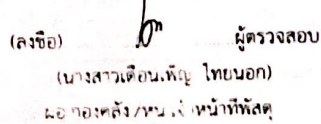 (ลงชื่อ) ผู้ตรวจสอบ
(นางสาวเดือนเพ็ญ ไทยนอก)
ผอ.กองคลัง/หน.เจ้าหน้าที่พัสดุ